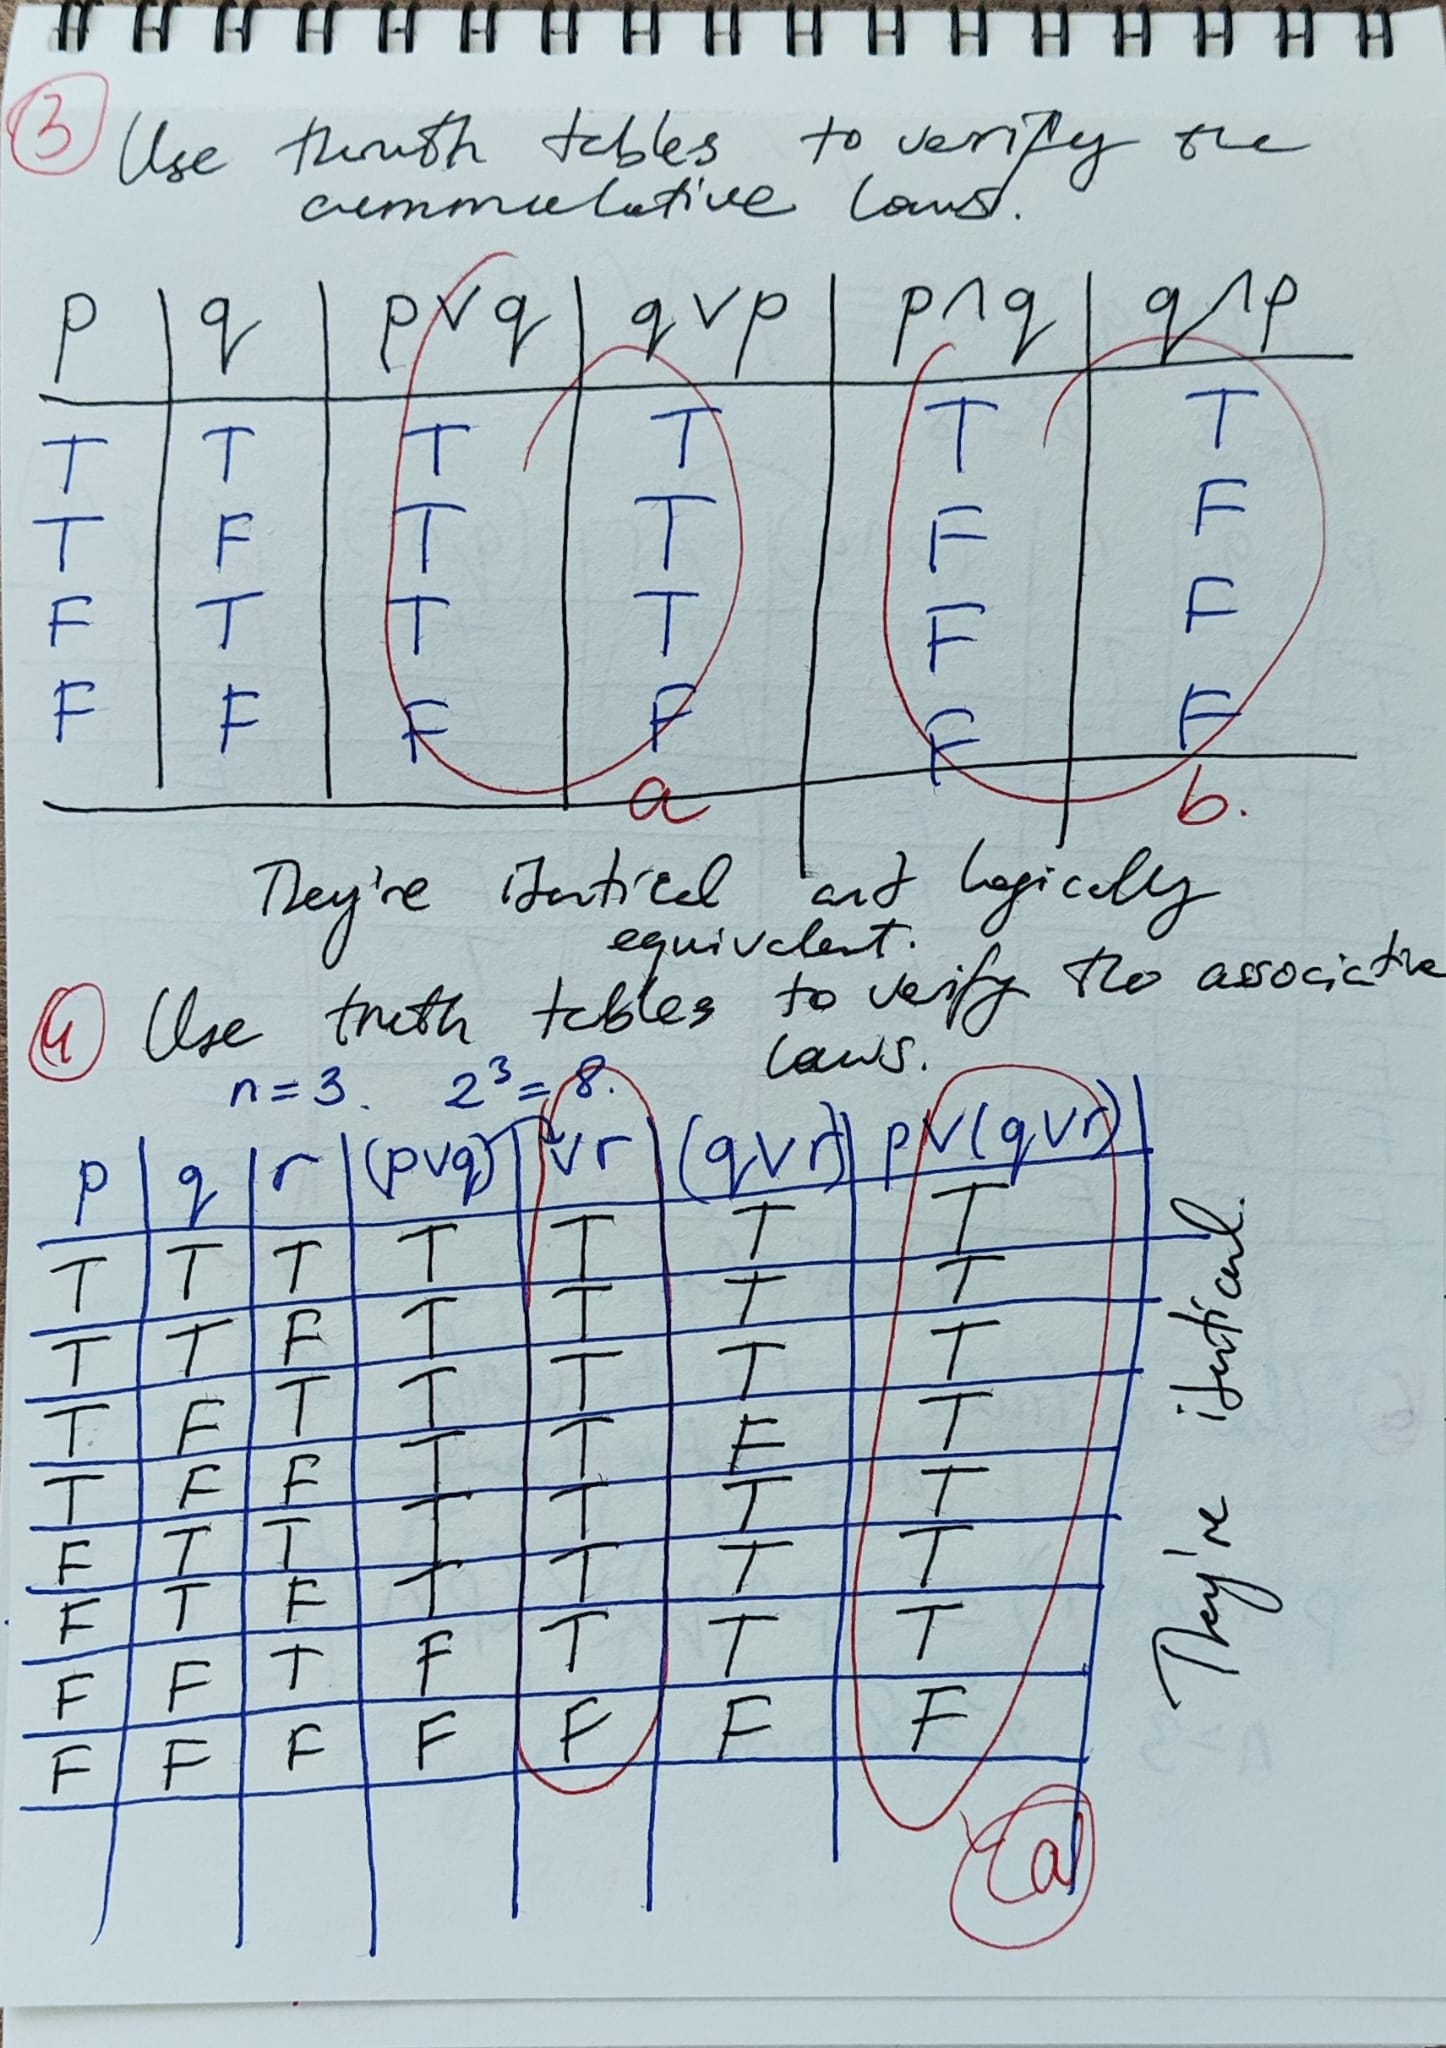 3 Use thruth tables to verify the
cummulative laws.
p | q | p ∨ q | q ∨ p | p ∧ q | q ∧ p
T T T T T T
T F T T F F
F T T T F F
F F F F F F
a b.
They're identical and logically
equivalent.
4 Use truth tables to verify the associative
laws.
n = 3. 2³ = 8.
p | q | r | (p∨q) | ∨r | (q∨r) | p∨(q∨r)
T T T T T T T
T T F T T T T
T F T T T T T
T F F T T F T
F T T T T T T
F T F T T T T
F F T F T T T
F F F F F F F
They're identical.
a